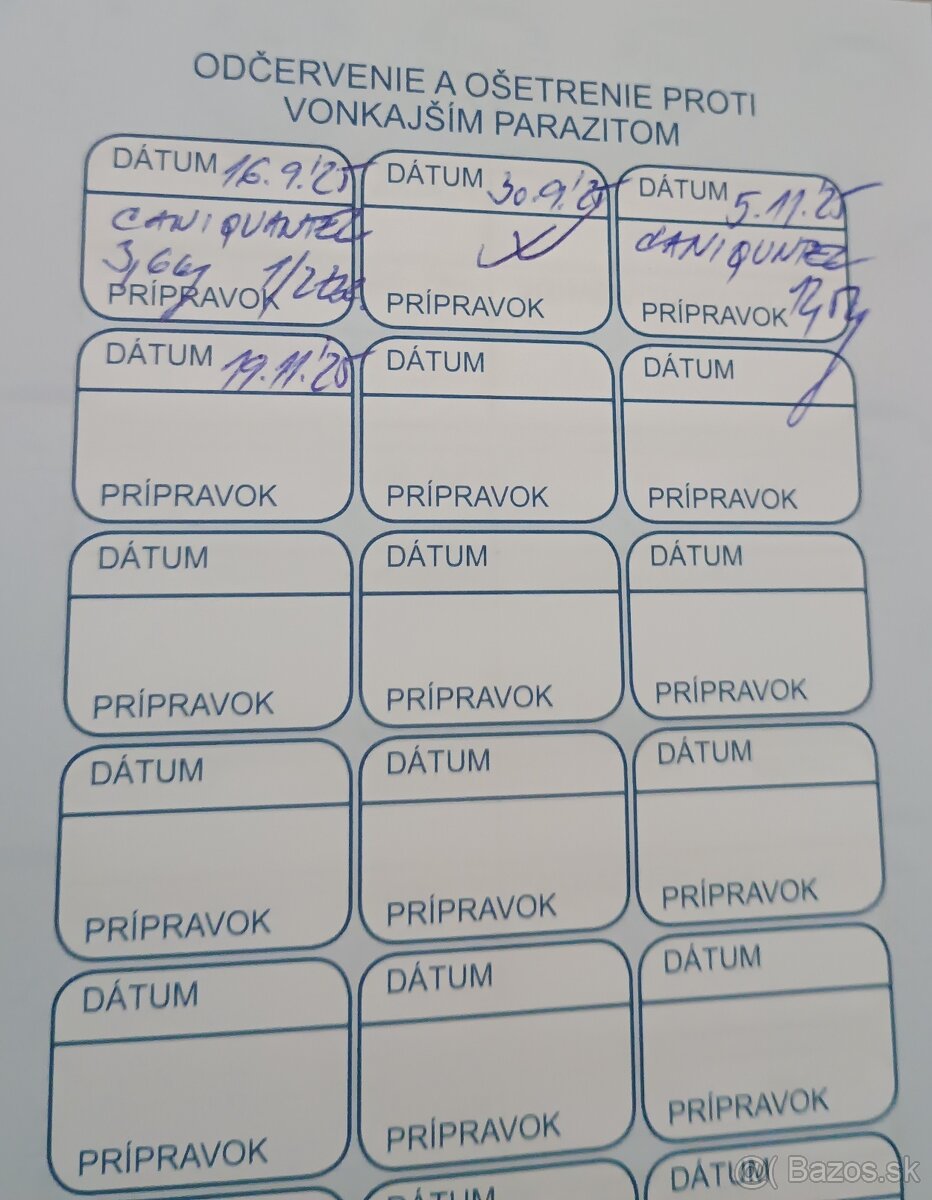 ODČERVENIE A OŠETRENIE PROTI
VONKAJŠÍM PARAZITOM
DÁTUM 16.9.'25
CANIQUANTEL
3,6kg 1/2tbl.
PRÍPRAVOK
DÁTUM 30.9.'25
PRÍPRAVOK
DÁTUM 5.11.'25
CANIQUNTEL
PRÍPRAVOK
DÁTUM 19.11.'25
PRÍPRAVOK
DÁTUM
PRÍPRAVOK
DÁTUM
PRÍPRAVOK
DÁTUM
PRÍPRAVOK
DÁTUM
PRÍPRAVOK
DÁTUM
PRÍPRAVOK
DÁTUM
PRÍPRAVOK
DÁTUM
PRÍPRAVOK
DÁTUM
PRÍPRAVOK
DÁTUM
PRÍPRAVOK
DÁTUM
PRÍPRAVOK
DÁTUM
PRÍPRAVOK
DÁTUM
DÁTUM
Bazos.sk